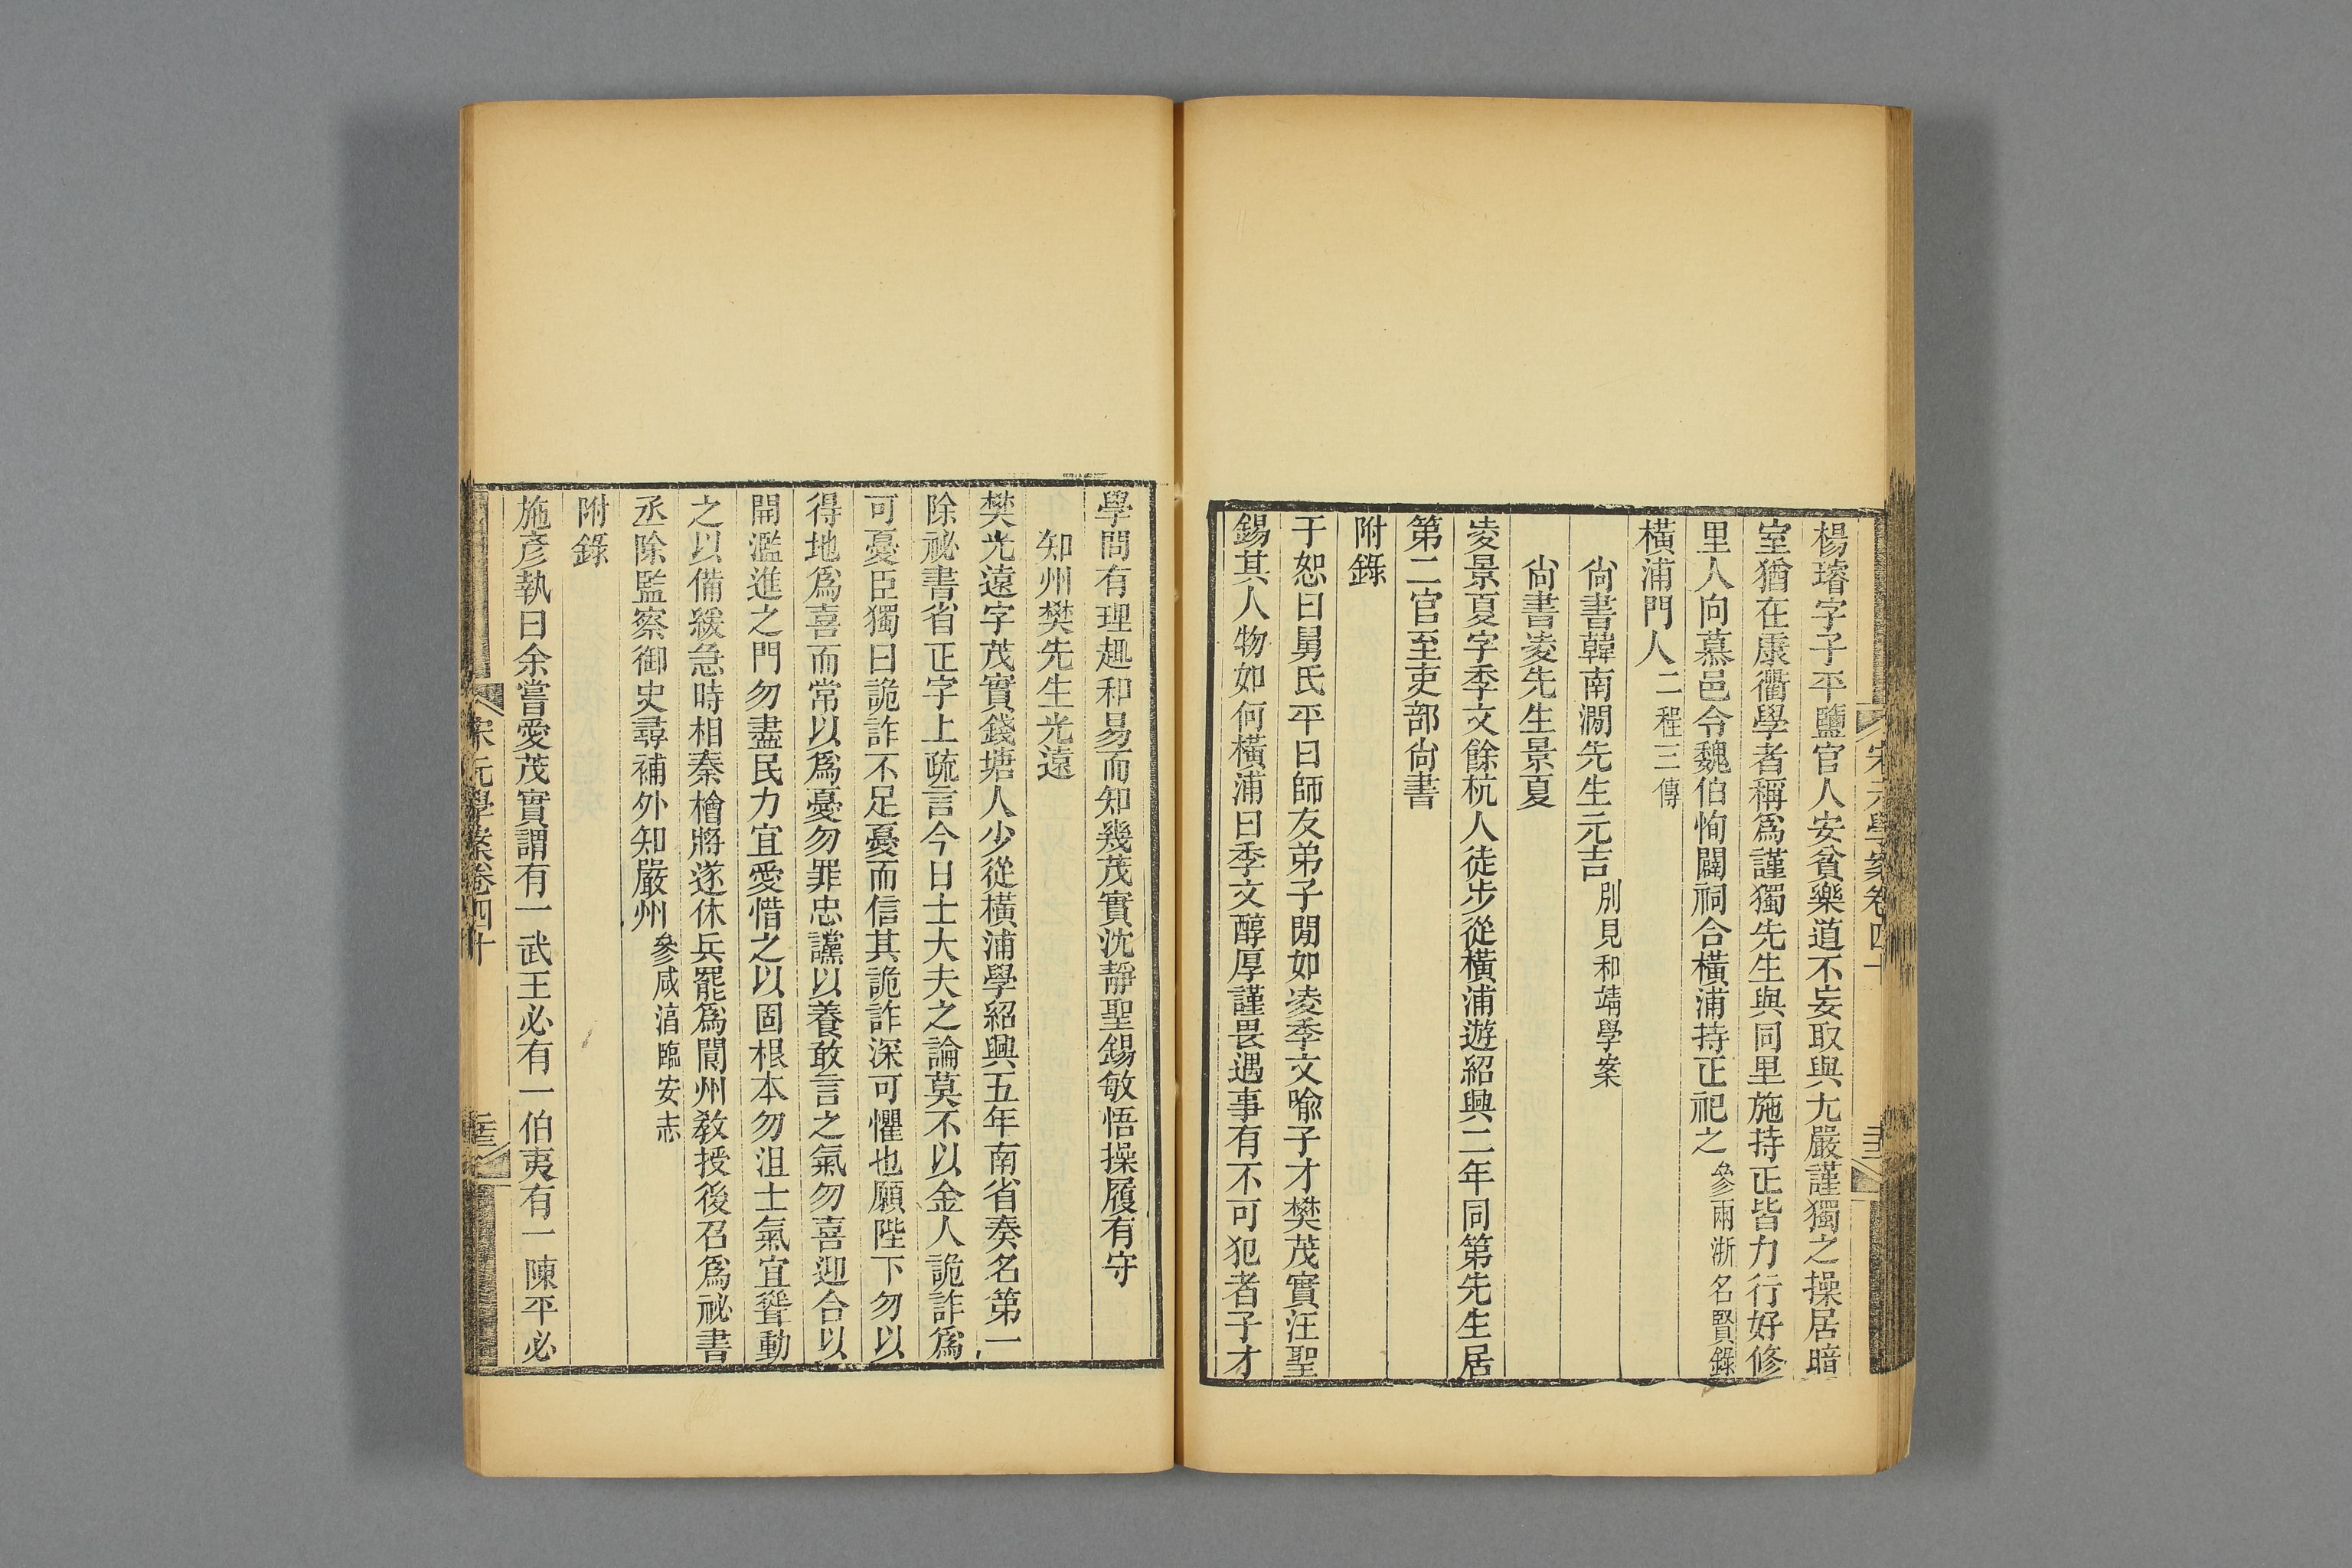 楊璿字子平鹽官人安貧樂道不妄取與尢嚴謹獨之操居暗
室猶在康衢學者稱爲謹獨先生與同里施持正皆力行好修
里人向慕邑令魏伯恂闢祠合橫浦持正祀之參兩浙名賢錄
橫浦門人二程三傳
尙書韓南澗先生元吉別見和靖學案
尙書凌先生景夏
凌景夏字季文餘杭人徒步從橫浦遊紹興二年同第先生居
第二官至吏部尙書
附錄
于恕曰舅氏平日師友弟子閒如凌季文喩子才樊茂實汪聖
錫其人物如何橫浦曰季文醇厚謹畏遇事有不可犯者子才
學問有理趣和易而知幾茂實沈靜聖錫敏悟操履有守
知州樊先生光遠
樊光遠字茂實錢塘人少從橫浦學紹興五年南省奏名第一
除祕書省正字上疏言今日士大夫之論莫不以金人詭詐爲
可憂臣獨曰詭詐不足憂而信其詭詐深可懼也願陛下勿以
得地爲喜而常以爲憂勿罪忠讜以養敢言之氣勿喜迎合以
開濫進之門勿盡民力宜愛惜之以固根本勿沮士氣宜聳動
之以備緩急時相秦檜將遂休兵罷爲閬州敎授後召爲祕書
丞除監察御史尋補外知嚴州參咸淳臨安志
附錄
施彥執曰余嘗愛茂實謂有一武王必有一伯夷有一陳平必
宋元學案卷四十